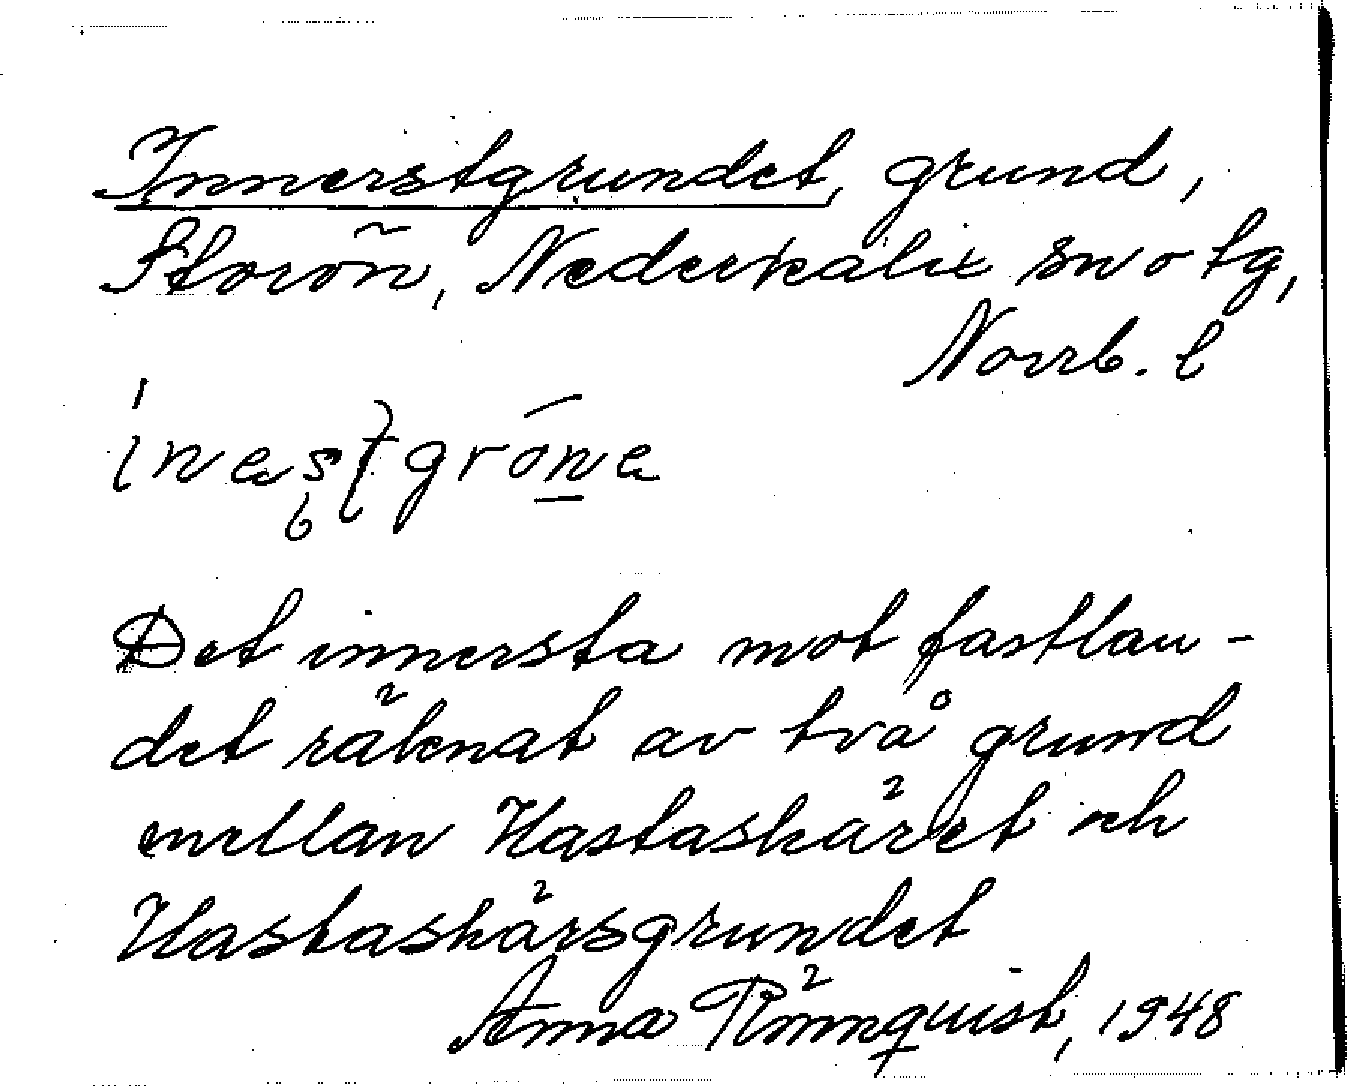 Innerstgrundet, grund,
Storön, Nederkalix sn o tg,
Norrb. l
Det innersta mot fastlan-
det räknat av två grund
mellan Hastaskäret och
Hastaskärsgrundet
Anna Rönnquist, 1948